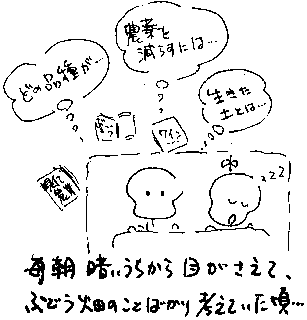 農薬を
減らすには…
どの品種が…
生きた
土とは…
ワイン
zzz
毎朝 暗いうちから 目がさえて、
ぶどう畑のことばかり 考えていた頃…